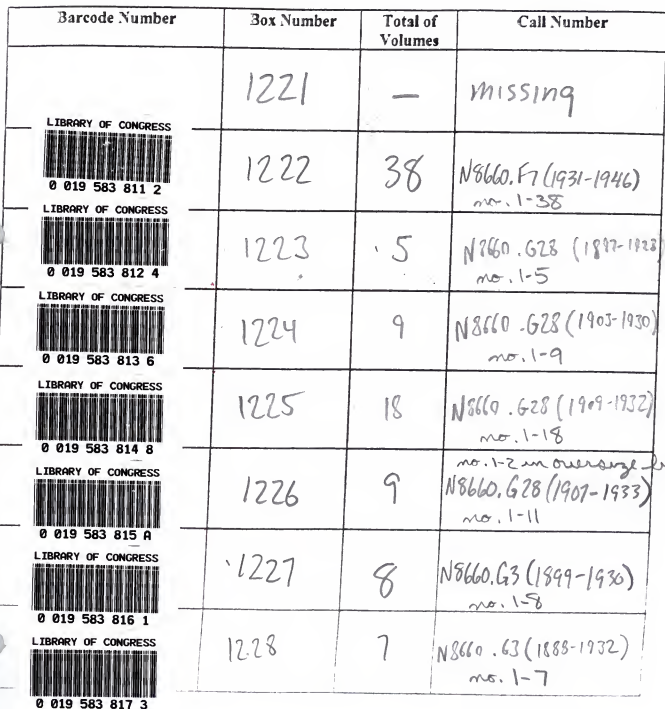 Barcode Number Box Number Total of Volumes Call Number
1221 — missing
LIBRARY OF CONGRESS
0 019 583 811 2
1222 38 N8660.F7 (1931-1946)
no. 1-38
LIBRARY OF CONGRESS
0 019 583 812 4
1223 5 N8660.G28 (1897-1928)
no. 1-5
LIBRARY OF CONGRESS
0 019 583 813 6
1224 9 N8660.G28 (1905-1930)
no. 1-9
LIBRARY OF CONGRESS
0 019 583 814 8
1225 18 N8660.G28 (1909-1932)
no. 1-18
no. 1-2 in oversize
LIBRARY OF CONGRESS
0 019 583 815 A
1226 9 N8660.G28 (1907-1933)
no. 1-11
LIBRARY OF CONGRESS
0 019 583 816 1
1227 8 N8660.G3 (1899-1930)
no. 1-8
LIBRARY OF CONGRESS
0 019 583 817 3
1228 7 N8660.G3 (1888-1932)
no. 1-7